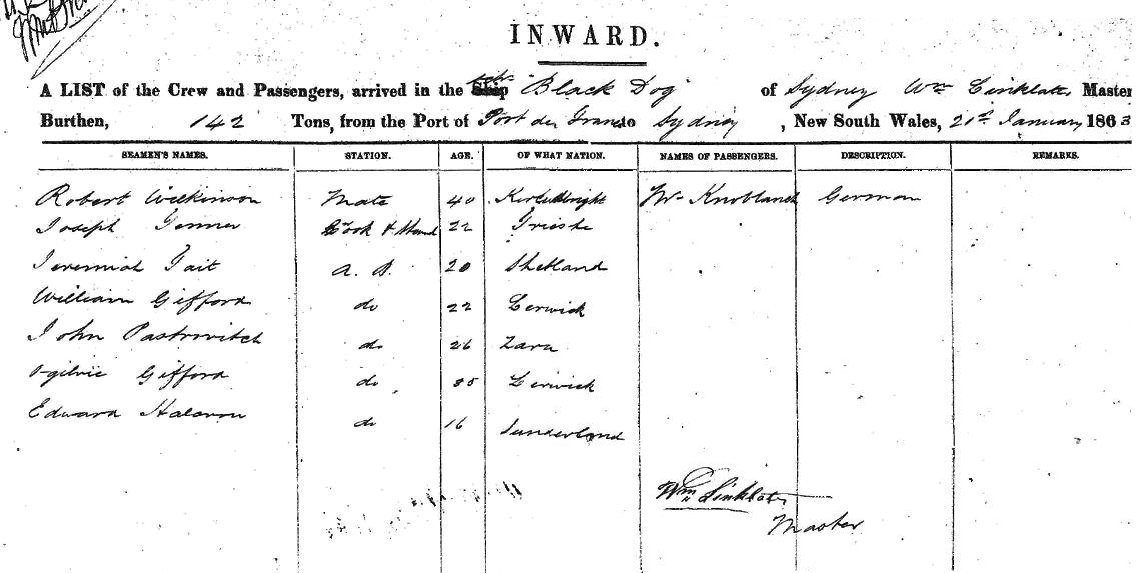 INWARD.
A LIST of the Crew and Passengers, arrived in the Ship Black Dog of Sydney Wm Sinklater Master
Burthen, 142 Tons, from the Port of Port de to Sydney, New South Wales, 21st January 1863
SEAMEN'S NAMES. STATION. AGE. OF WHAT NATION. NAMES OF PASSENGERS. DESCRIPTION. REMARKS.
Robert Wilkinson Mate 40 Mr German
Joseph Cook & 22
Jeremiah Tait A. B. 20 Shetland
William Gifford do 22 Lerwick
John Pastrovitch do 26 Zara
Ogilvie Gifford do Lerwick
Edward Halcrow do 16 Sunderland
Wm Sinklater
Master